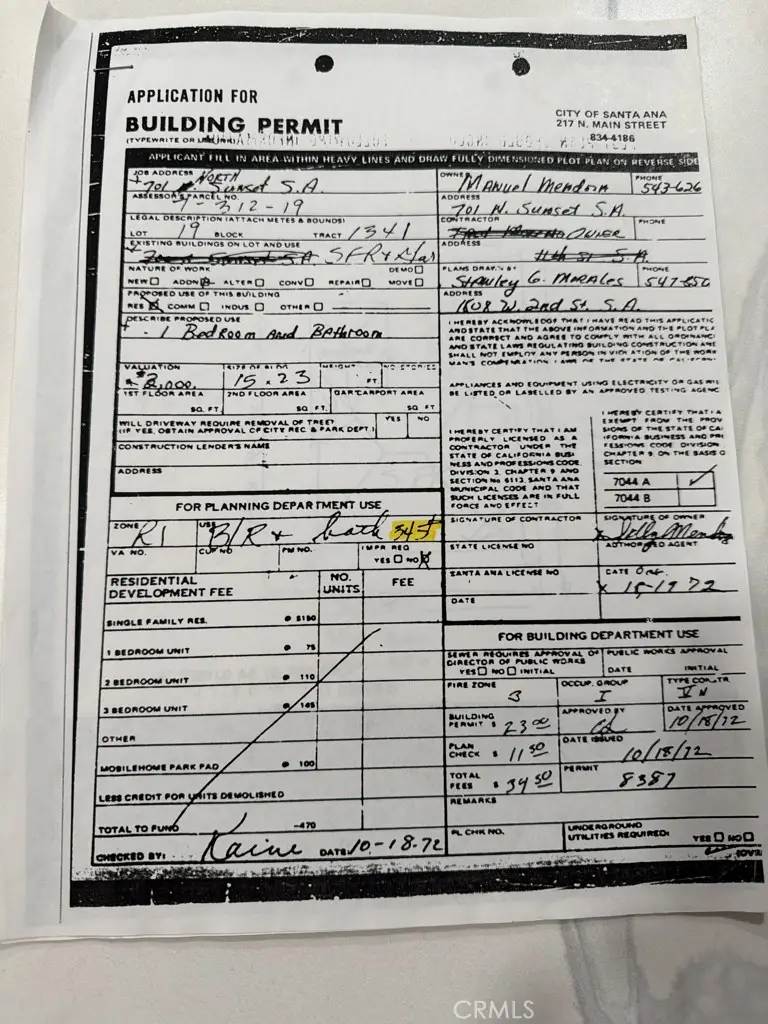 APPLICATION FOR
BUILDING PERMIT
(TYPEWRITE OR
CITY OF SANTA ANA
217 N. MAIN STREET
834-4186
APPLICANT FILL IN AREA WITHIN HEAVY LINES AND DRAW FULLY DIMENSIONED PLOT PLAN ON REVERSE SIDE
JOB ADDRESS NORTH
701 Sunset S.A.
ASSESSOR'S PARCEL NO.
312-19
LEGAL DESCRIPTION (ATTACH METES & BOUNDS)
LOT 19 BLOCK TRACT 1341
EXISTING BUILDINGS ON LOT AND USE
SFR &
NATURE OF WORK DEMO
NEW ADDN ALTER CONV REPAIR MOVE
PROPOSED USE OF THIS BUILDING
RES COMM INDUS OTHER
DESCRIBE PROPOSED USE
1 Bedroom And Bathroom
VALUATION SIZE OF BLDG HEIGHT NO STORIES
2,000. 15 x 23 FT
1ST FLOOR AREA 2ND FLOOR AREA GAR CARPORT AREA
SQ FT. SQ FT. SQ FT.
WILL DRIVEWAY REQUIRE REMOVAL OF TREE? YES NO
(IF YES, OBTAIN APPROVAL OF CITY REC & PARK DEPT.)
CONSTRUCTION LENDER'S NAME
ADDRESS
OWNER Manuel Mendoza PHONE 543-626
ADDRESS
701 N. Sunset S.A.
CONTRACTOR Owner PHONE
ADDRESS
PLANS DRAWN BY PHONE
Stanley G. Morales 547-850
ADDRESS
1508 W. 2nd St. S.A.
I HEREBY ACKNOWLEDGE THAT I HAVE READ THIS APPLICATIC
AND STATE THAT THE ABOVE INFORMATION AND THE PLOT PLA
ARE CORRECT AND AGREE TO COMPLY WITH ALL ORDINANC
AND STATE LAWS REGULATING BUILDING CONSTRUCTION AND
SHALL NOT EMPLOY ANY PERSON IN VIOLATION OF THE WORK
MAN'S COMPENSATION LAWS OF THE STATE OF CALIFORNI
APPLIANCES AND EQUIPMENT USING ELECTRICITY OR GAS WIL
BE LISTED OR LABELLED BY AN APPROVED TESTING AGENC
I HEREBY CERTIFY THAT I AM
PROPERLY LICENSED AS A
CONTRACTOR UNDER THE
STATE OF CALIFORNIA BUSI
NESS AND PROFESSIONS CODE,
DIVISION 3, CHAPTER 9 AND
SECTION No 8113, SANTA ANA
MUNICIPAL CODE AND THAT
SUCH LICENSES ARE IN FULL
FORCE AND EFFECT
I HEREBY CERTIFY THAT I A
EXEMPT FROM THE PROV
SIONS OF THE STATE OF CAL
IFORNIA BUSINESS AND PRO
FESSIONS CODE DIVISION
CHAPTER 9, ON THE BASIS O
SECTION
7044 A
7044 B
SIGNATURE OF CONTRACTOR SIGNATURE OF OWNER
AUTHORIZED AGENT
STATE LICENSE NO
SANTA ANA LICENSE NO DATE
DATE
FOR PLANNING DEPARTMENT USE
ZONE R1 USE B/R & bath 345
VA NO. CUP NO PM NO. IMPR REQ
YES NO
RESIDENTIAL
DEVELOPMENT FEE
NO.
UNITS
FEE
SINGLE FAMILY RES. @ $150
1 BEDROOM UNIT @ 75
2 BEDROOM UNIT @ 110
3 BEDROOM UNIT @ 145
OTHER
MOBILEHOME PARK PAD @ 100
LESS CREDIT FOR UNITS DEMOLISHED
TOTAL TO FUND -470
CHECKED BY: Kaine DATE: 10-18-72
FOR BUILDING DEPARTMENT USE
SEWER REQUIRES APPROVAL OF PUBLIC WORKS APPROVAL
DIRECTOR OF PUBLIC WORKS
YES NO INITIAL DATE INITIAL
FIRE ZONE OCCUP. GROUP TYPE CONSTR.
3 I V N
BUILDING
PERMIT $ 23 00
APPROVED BY
DATE APPROVED
10/18/72
PLAN
CHECK $ 11 50
DATE ISSUED
10/18/72
TOTAL
FEES $ 34 50
PERMIT
8387
REMARKS
PL CHK NO. UNDERGROUND
UTILITIES REQUIRED: YES NO
CRMLS